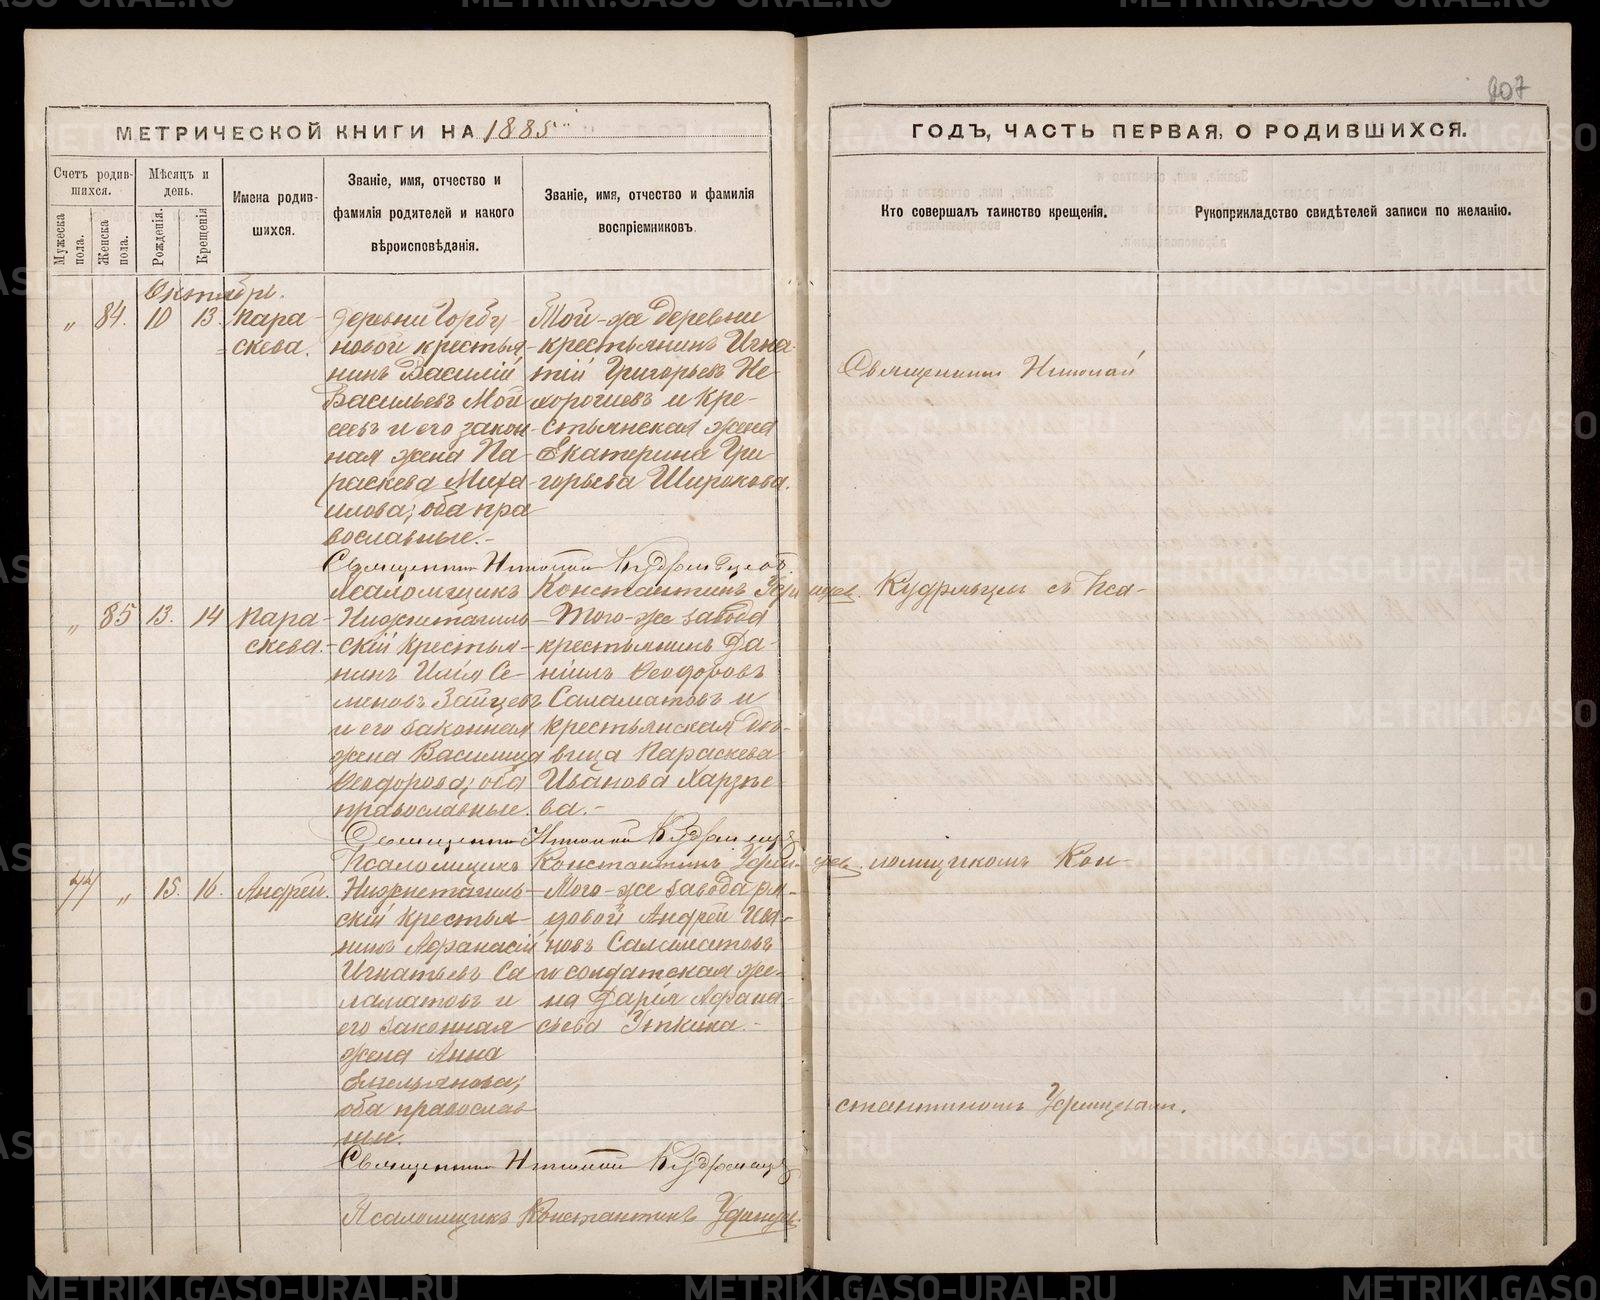 907
МЕТРИЧЕСКОЙ КНИГИ НА 1885
ГОДЪ, ЧАСТЬ ПЕРВАЯ, О РОДИВШИХСЯ.
Счетъ родив-
шихся.
Мужеска пола.
Женска пола.
Мѣсяцъ и
день.
Рожденія.
Крещенія
Имена родив-
шихся.
Званіе, имя, отчество и
фамилія родителей и какого
вѣроисповѣданія.
Званіе, имя, отчество и фамилія
воспріемниковъ.
Кто совершалъ таинство крещенія.
Рукоприкладство свидѣтелей записи по желанію.
Октябрь.
„ 84. 10 13. Пара-
скева.
деревни Горбу
новой крестья-
нинъ Василій
Васильевъ Мои
сеевъ и его закон-
ная жена Па-
раскева Миха-
илова; оба пра
вославные.-
Той-же деревни
крестьянинъ Игна-
тій Григорьевъ Не-
хорошевъ и кре-
стьянская жена
Екатерина Гри
горьева Широкова.
Священникъ Николай
Священникъ Николай Кудрявцевъ.
Псаломщикъ Константинъ
Кудрявцевъ съ Пса-
„ 85 13. 14 Пара-
скева.
Нижнетагиль-
скій крестья-
нинъ Илія Се-
меновъ Зайцевъ
и его законная
жена Василиса
Ѳеодорова; оба
православные.
Того-же завода
крестьянинъ Да-
ніилъ Ѳеодоровъ
Саламатовъ и
крестьянская дѣ-
вица Параскева
Иванова
ва.-
Священникъ Николай Кудрявцевъ
Псаломщикъ Константинъ
ломщикомъ Кон-
77 „ 15. 16. Андрей.
Нижнетагиль-
скій крестья-
нинъ Афанасій
Игнатьевъ Са
ламатовъ и
его законная
жена Анна
Емельянова;
оба православ
ные.
Того-же завода ря-
довой Андрей Ива-
новъ Саламатовъ
и солдатская же-
на Дарія Афана-
сьева Уткина.-
стантиномъ
Священникъ Николай Кудрявцевъ
Псаломщикъ Константинъ
METRIKI.GASO-URAL.RU